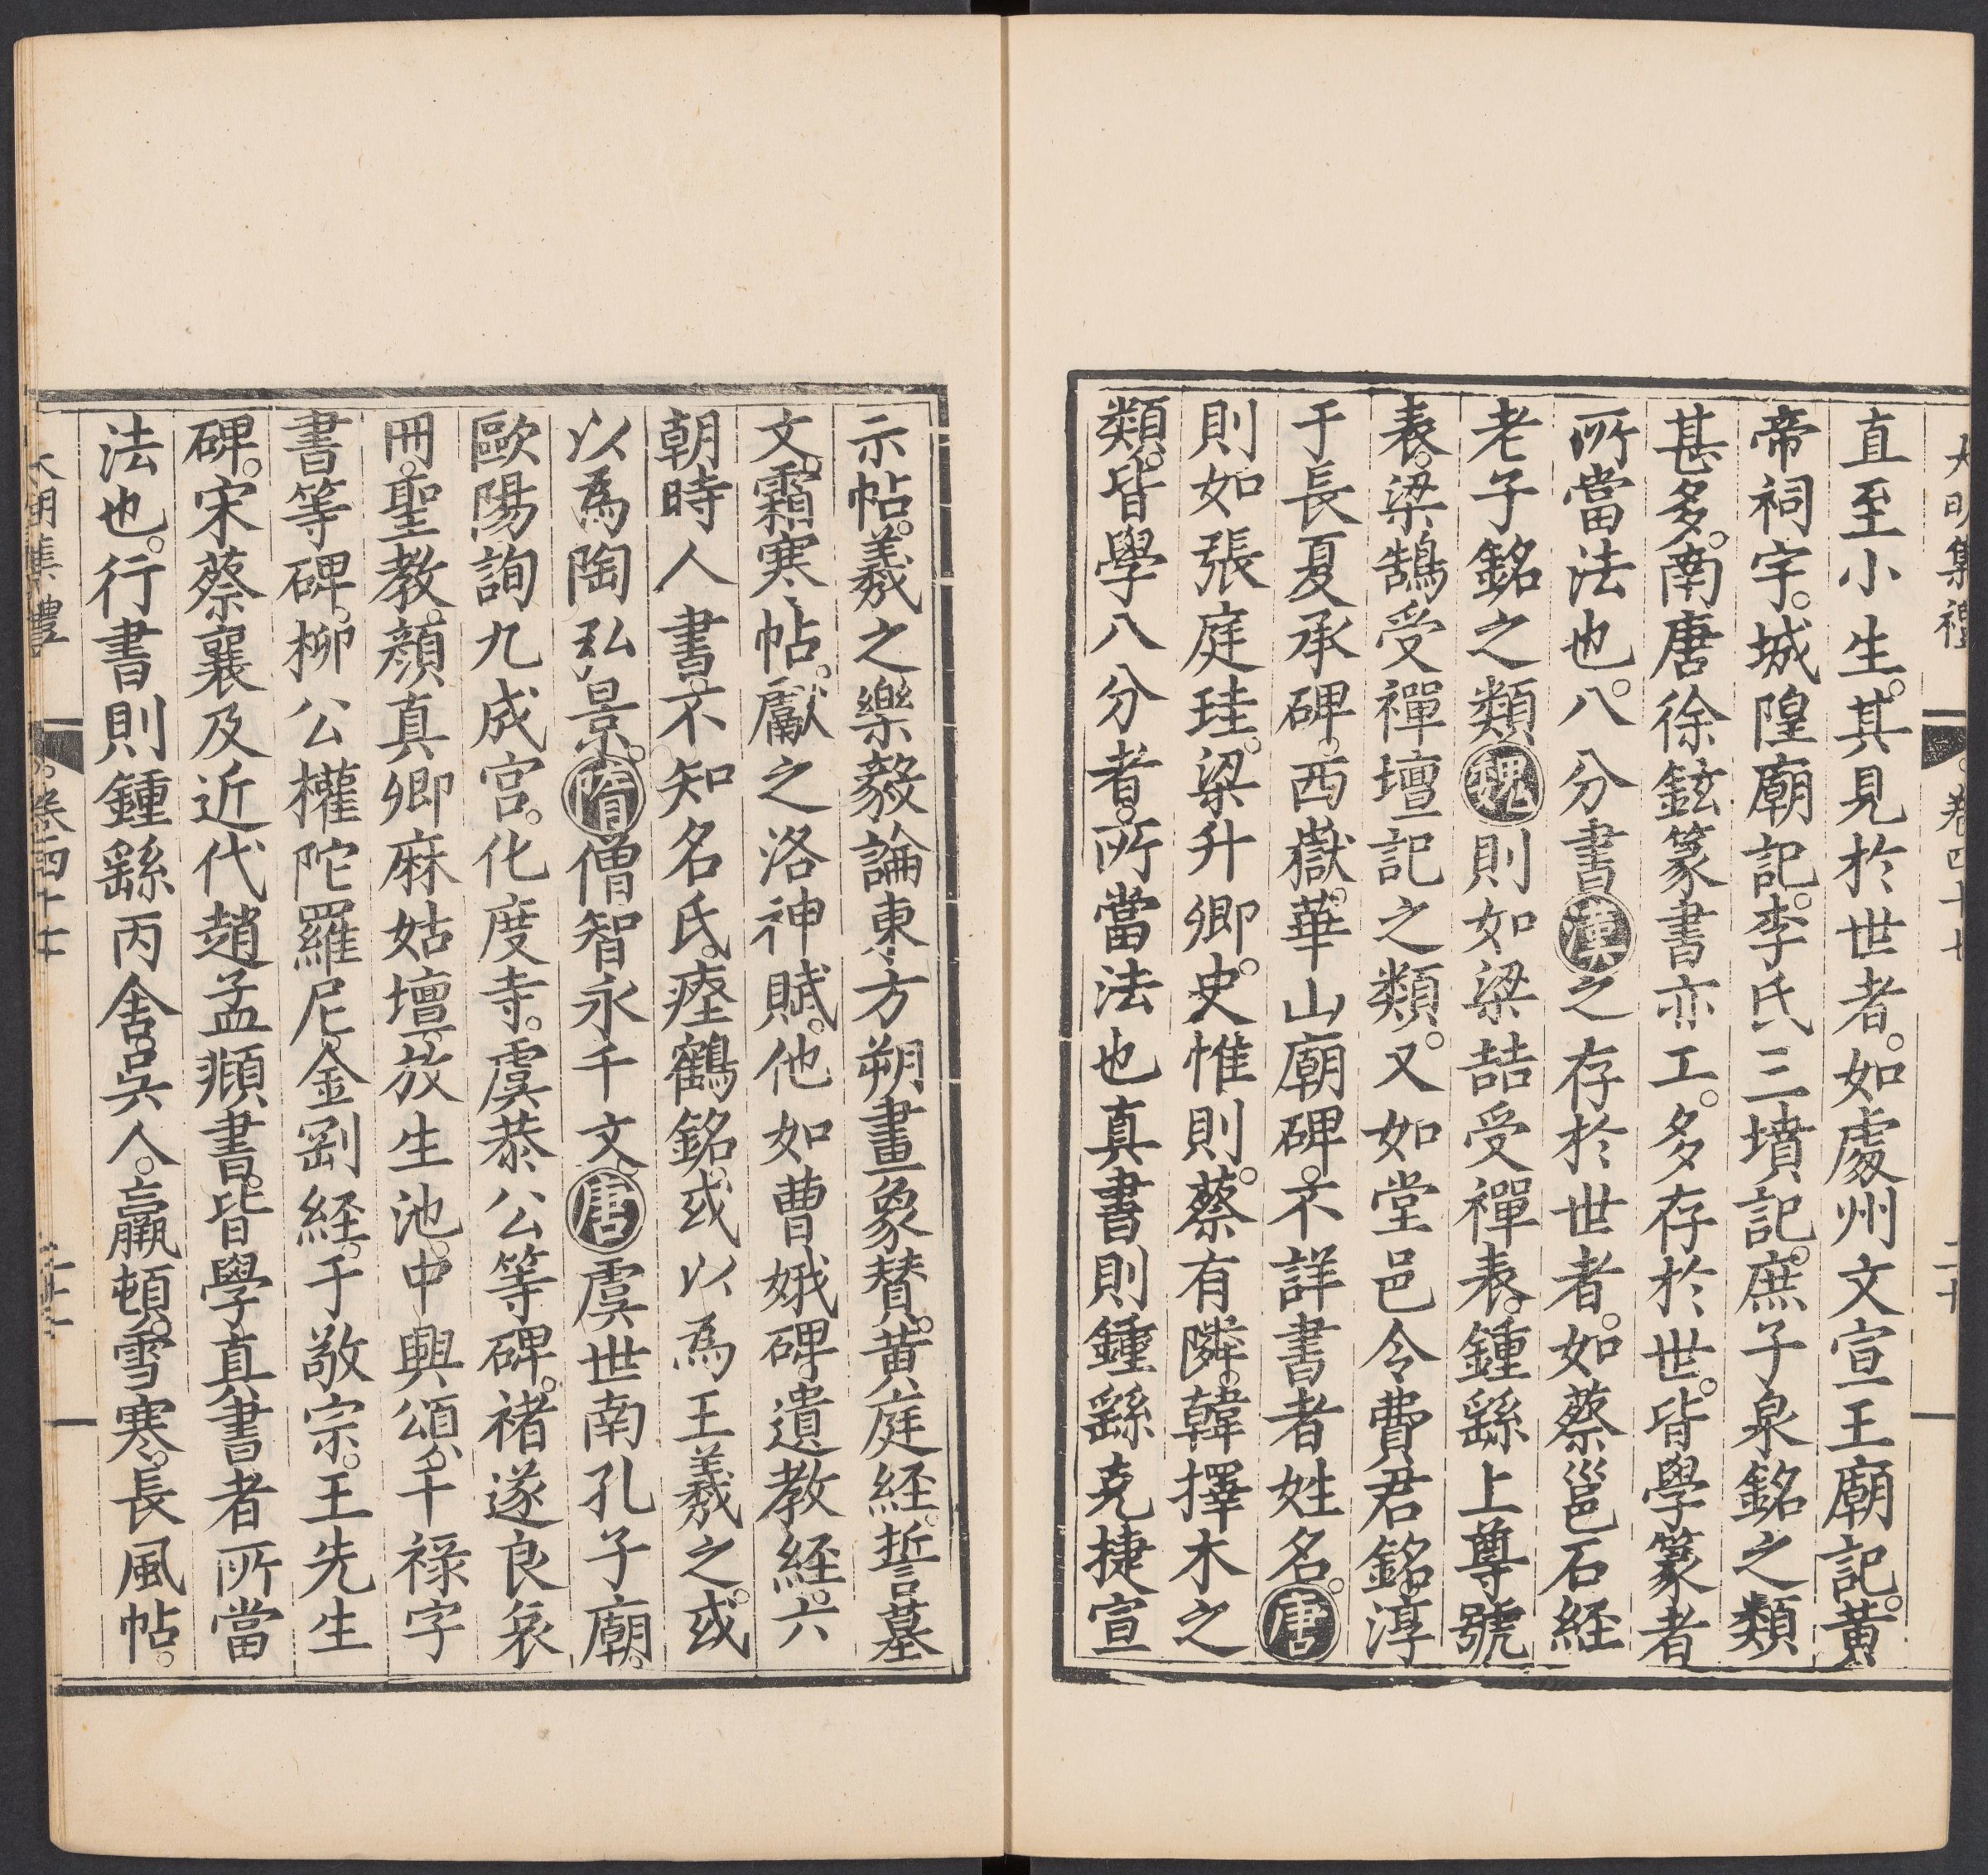 大明集禮 卷四十七 二十
直至小生。其見於世者。如處州文宣王廟記。黃
帝祠宇。城隍廟記。李氏三墳記。庶子泉銘之類
甚多。南唐徐鉉篆書亦工。多存於世。皆學篆者
所當法也。八分書漢之存於世者。如蔡邕石経
老子銘之類魏則如梁喆受禪表。鍾繇上尊號
表。梁鵠受禪壇記之類。又如堂邑令費君銘。淳
于長夏承碑。西嶽。華山廟碑。不詳書者姓名。唐
則如張庭珪。梁升卿。史惟則。蔡有隣。韓擇木之
類。皆學八分者。所當法也真書則鍾繇克捷宣
示帖。羲之樂毅論東方朔畫象賛。黃庭経。誓墓
文。霜寒帖。獻之洛神賦。他如曹娥碑遺教経。六
朝時人書。不知名氏。瘞鶴銘。或以為王羲之。或
以為陶弘景。隋僧智永千文。唐虞世南孔子廟。
歐陽詢九成宮。化度寺。虞恭公等碑。褚遂良哀
冊。聖教。顔真卿麻姑壇。放生池。中興頌。千祿字
書等碑。柳公權陀羅尼。金剛経。于敬宗。王先生
碑。宋蔡襄及近代趙孟頫書。皆學真書者所當
法也。行書則鍾繇丙舍。吳人。羸頓。雪寒。長風帖。
大明集禮 卷四十七